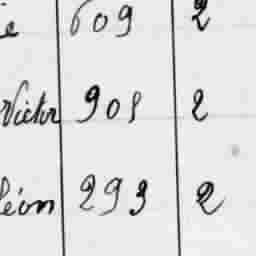 e 609 2
Victor 901 2
Léon 293 2